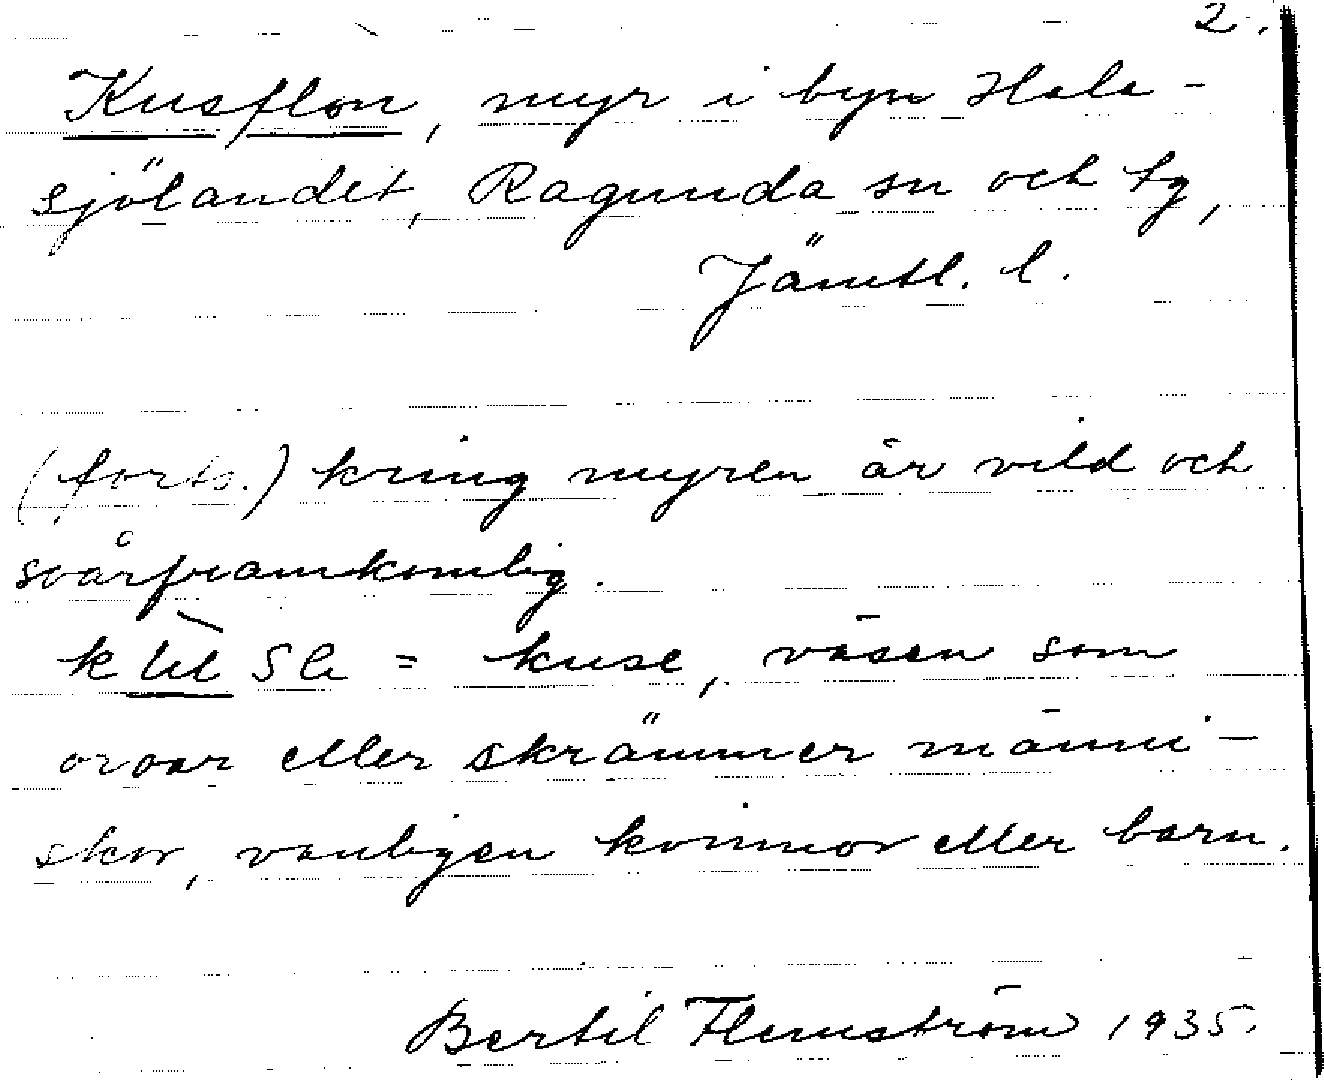 2.
Kusflon, myr i byn Hala-
sjölandet, Ragunda sn och tg,
Jämtl. l.
(forts.) kring myren är vild och
svårframkomlig.
= kuse, väsen som
oroar eller skrämmer männi-
skor, vanligen kvinnor eller barn.
Bertil Flemström 1935.